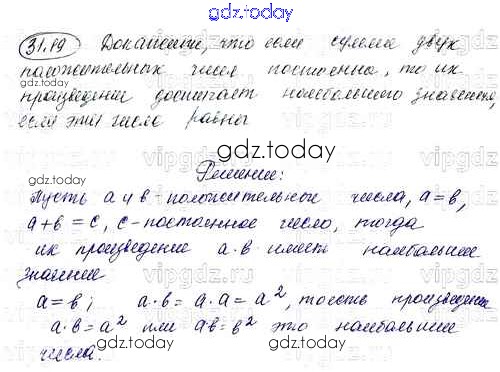 gdz.today
31.19 Докажите, что если сумма двух
положительных чисел постоянна, то их
gdz.today
произведение достигает наибольшего значения,
если эти числа равны
vipgdz.ru
gdz.today
Решение:
gdz.today
Пусть a и b - положительные числа, a = b,
a + b = c, c - постоянное число, тогда
их произведение a·b имеет наибольшее
vipgdz.ru
значение
a = b; a·b = a·a = a², то есть произведение
gdz.today
a·b = a² или ab = b² это наибольшие
gdz.today
числа.
gdz.today